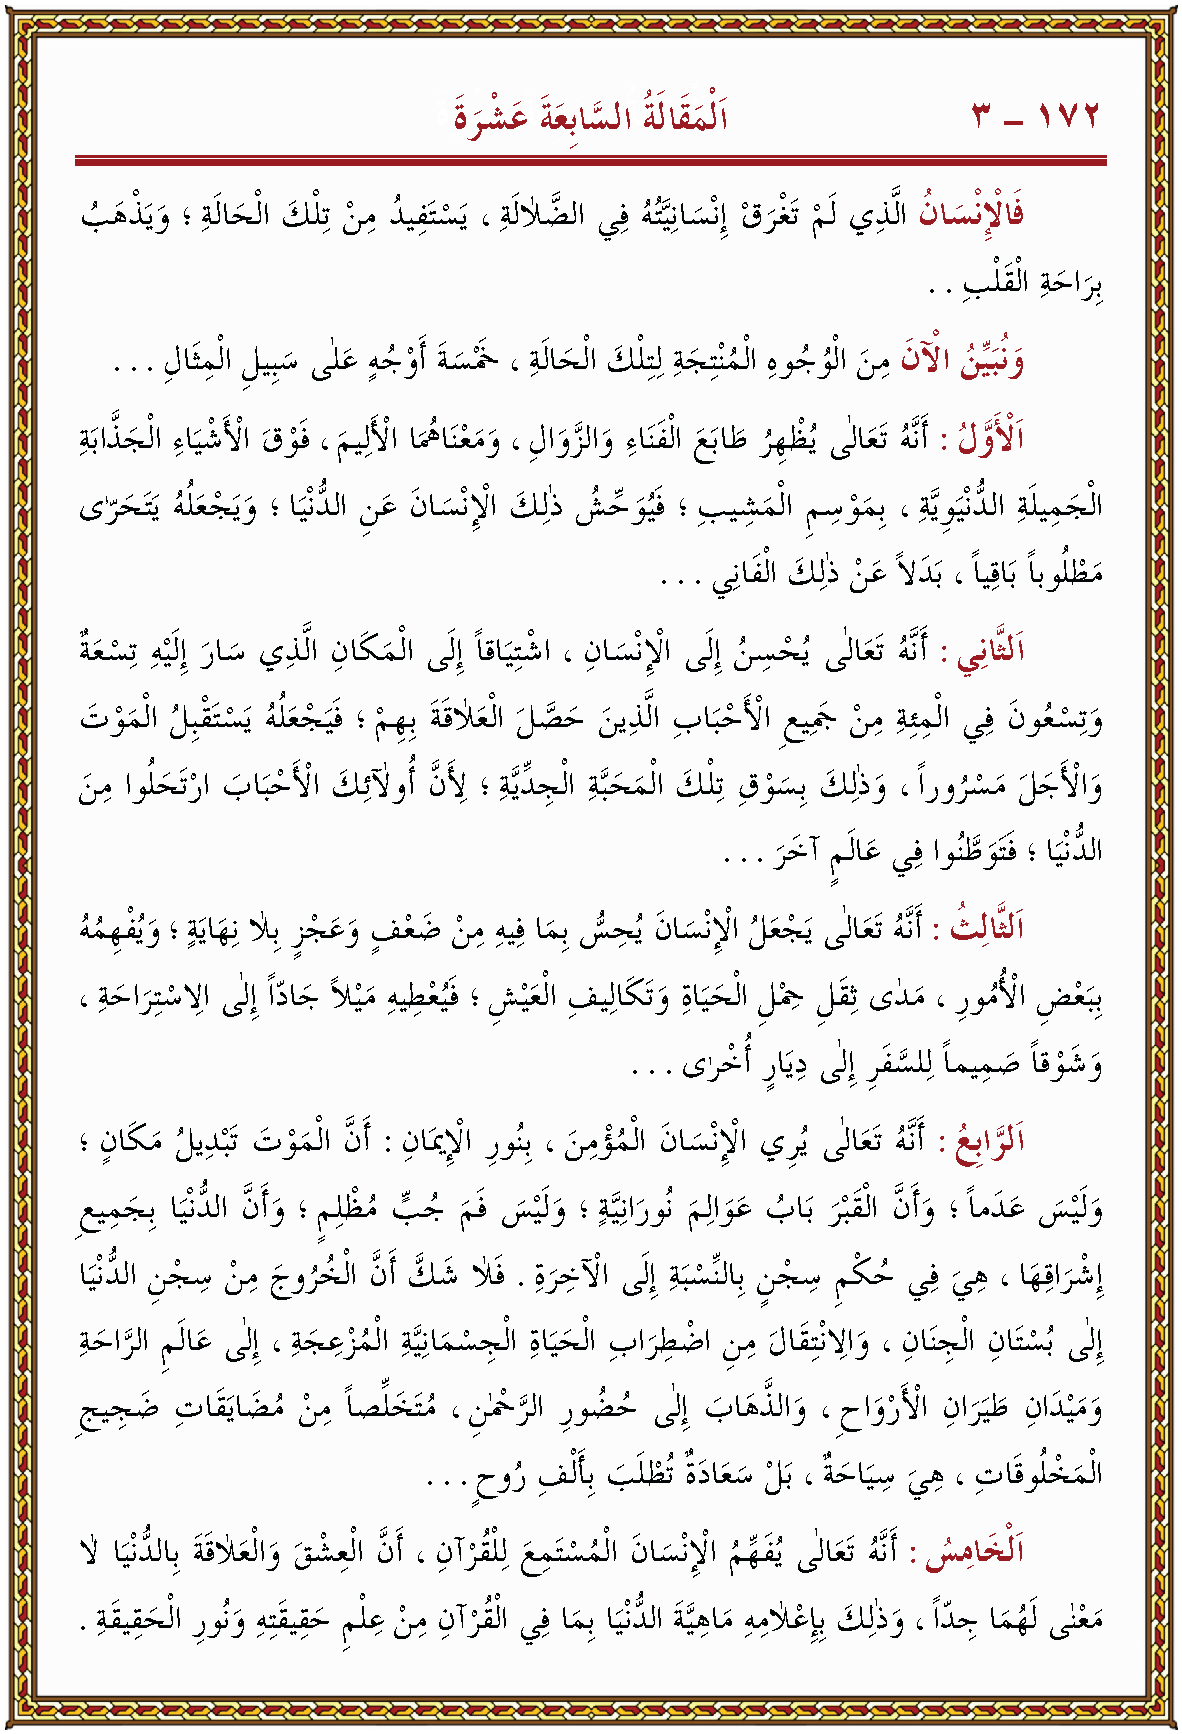 ١٧٢ - ٣ اَلْمَقَالَةُ السَّابِعَةَ عَشْرَةَ
فَالْإِنْسَانُ الَّذِي لَمْ تَغْرَقْ إِنْسَانِيَّتُهُ فِي الضَّلَالَةِ ، يَسْتَفِيدُ مِنْ تِلْكَ الْحَالَةِ ؛ وَيَذْهَبُ
بِرَاحَةِ الْقَلْبِ . .
وَنُبَيِّنُ الْآنَ مِنَ الْوُجُوهِ الْمُنْتِجَةِ لِتِلْكَ الْحَالَةِ ، خَمْسَةَ أَوْجُهٍ عَلٰى سَبِيلِ الْمِثَالِ . . .
اَلْأَوَّلُ : أَنَّهُ تَعَالٰى يُظْهِرُ طَابَعَ الْفَنَاءِ وَالزَّوَالِ ، وَمَعْنَاهُمَا الْأَلِيمَ ، فَوْقَ الْأَشْيَاءِ الْجَذَّابَةِ
الْجَمِيلَةِ الدُّنْيَوِيَّةِ ، بِمَوْسِمِ الْمَشِيبِ ؛ فَيُوَحِّشُ ذٰلِكَ الْإِنْسَانَ عَنِ الدُّنْيَا ؛ وَيَجْعَلُهُ يَتَحَرّٰى
مَطْلُوباً بَاقِياً ، بَدَلاً عَنْ ذٰلِكَ الْفَانِي . . .
اَلثَّانِي : أَنَّهُ تَعَالٰى يُحْسِنُ إِلَى الْإِنْسَانِ ، اشْتِيَاقاً إِلَى الْمَكَانِ الَّذِي سَارَ إِلَيْهِ تِسْعَةٌ
وَتِسْعُونَ فِي الْمِئَةِ مِنْ جَمِيعِ الْأَحْبَابِ الَّذِينَ حَصَّلَ الْعَلَاقَةَ بِهِمْ ؛ فَيَجْعَلُهُ يَسْتَقْبِلُ الْمَوْتَ
وَالْأَجَلَ مَسْرُوراً ، وَذٰلِكَ بِسَوْقِ تِلْكَ الْمَحَبَّةِ الْجِدِّيَّةِ ؛ لِأَنَّ أُولٰآئِكَ الْأَحْبَابَ ارْتَحَلُوا مِنَ
الدُّنْيَا ؛ فَتَوَطَّنُوا فِي عَالَمٍ آخَرَ . . .
اَلثَّالِثُ : أَنَّهُ تَعَالٰى يَجْعَلُ الْإِنْسَانَ يُحِسُّ بِمَا فِيهِ مِنْ ضَعْفٍ وَعَجْزٍ بِلَا نِهَايَةٍ ؛ وَيُفْهِمُهُ
بِبَعْضِ الْأُمُورِ ، مَدٰى ثِقَلِ حِمْلِ الْحَيَاةِ وَتَكَالِيفِ الْعَيْشِ ؛ فَيُعْطِيهِ مَيْلاً جَادّاً إِلٰى الِاسْتِرَاحَةِ ،
وَشَوْقاً صَمِيماً لِلسَّفَرِ إِلٰى دِيَارٍ أُخْرٰى . . .
اَلرَّابِعُ : أَنَّهُ تَعَالٰى يُرِي الْإِنْسَانَ الْمُؤْمِنَ ، بِنُورِ الْإِيمَانِ : أَنَّ الْمَوْتَ تَبْدِيلُ مَكَانٍ ؛
وَلَيْسَ عَدَماً ؛ وَأَنَّ الْقَبْرَ بَابُ عَوَالِمَ نُورَانِيَّةٍ ؛ وَلَيْسَ فَمَ جُبٍّ مُظْلِمٍ ؛ وَأَنَّ الدُّنْيَا بِجَمِيعِ
إِشْرَاقِهَا ، هِيَ فِي حُكْمِ سِجْنٍ بِالنِّسْبَةِ إِلَى الْآخِرَةِ . فَلَا شَكَّ أَنَّ الْخُرُوجَ مِنْ سِجْنِ الدُّنْيَا
إِلٰى بُسْتَانِ الْجِنَانِ ، وَالِانْتِقَالَ مِنِ اضْطِرَابِ الْحَيَاةِ الْجِسْمَانِيَّةِ الْمُزْعِجَةِ ، إِلٰى عَالَمِ الرَّاحَةِ
وَمَيْدَانِ طَيَرَانِ الْأَرْوَاحِ ، وَالذَّهَابَ إِلٰى حُضُورِ الرَّحْمٰنِ ، مُتَخَلِّصاً مِنْ مُضَايَقَاتِ ضَجِيجِ
الْمَخْلُوقَاتِ ، هِيَ سِيَاحَةٌ ، بَلْ سَعَادَةٌ تُطْلَبَ بِأَلْفِ رُوحٍ . . .
اَلْخَامِسُ : أَنَّهُ تَعَالٰى يُفَهِّمُ الْإِنْسَانَ الْمُسْتَمِعَ لِلْقُرْآنِ ، أَنَّ الْعِشْقَ وَالْعَلَاقَةَ بِالدُّنْيَا لَا
مَعْنٰى لَهُمَا جِدّاً ، وَذٰلِكَ بِإِعْلَامِهِ مَاهِيَّةَ الدُّنْيَا بِمَا فِي الْقُرْآنِ مِنْ عِلْمِ حَقِيقَتِهِ وَنُورِ الْحَقِيقَةِ .